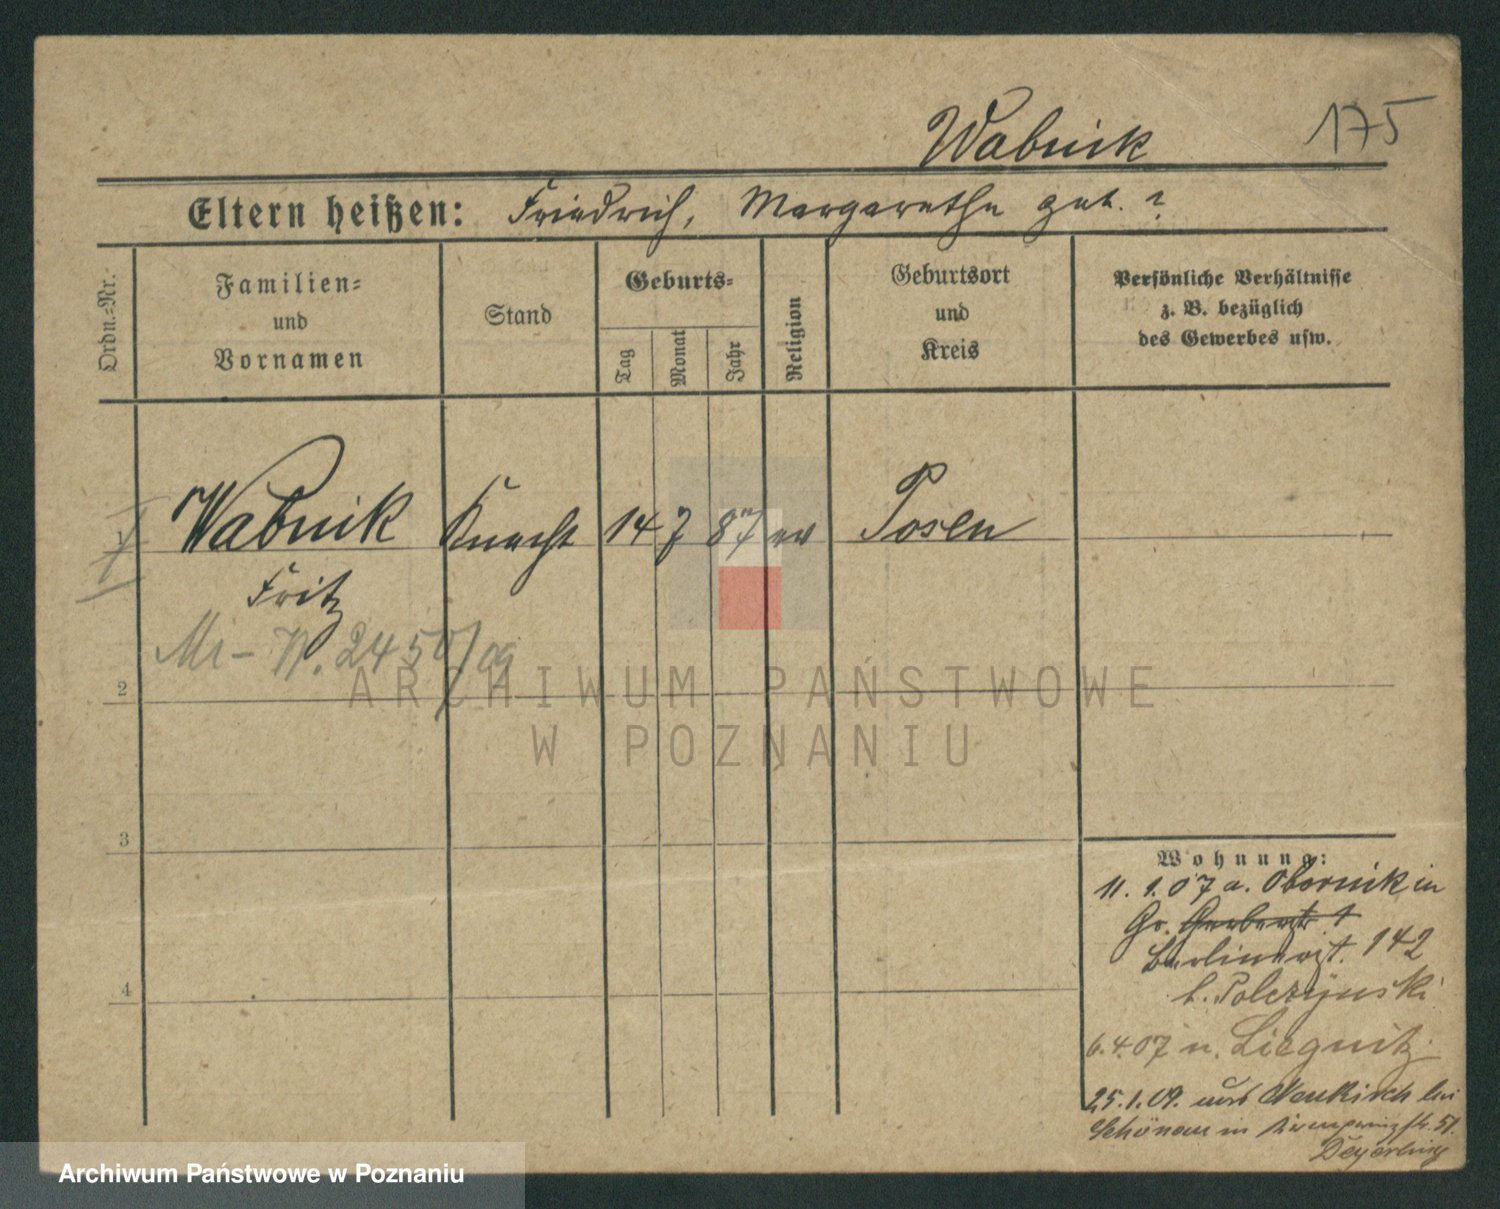 Wabnik
175
Eltern heißen: Friedrich, Margarethe geb. ?
Ordn.-Nr.
Familien-
und
Vornamen
Stand
Geburts-
Tag
Monat
Jahr
Religion
Geburtsort
und
Kreis
Persönliche Verhältnisse
z. B. bezüglich
des Gewerbes usw.
1 Wabnik Knecht 14 7 87 ev Posen
Fritz
N. 2450/09
2
3
4
ARCHIWUM PAŃSTWOWE
W POZNANIU
Wohnung:
11. 1. 07 a. Obornik in
Gr. Gerberstr. 1
Berlinerst. 142
b. Polczynski
6.4.07 n. Liegnitz
25.1.09. aus Neukirch bei
Schönau in Kronprinzstr. 51.
Archiwum Państwowe w Poznaniu